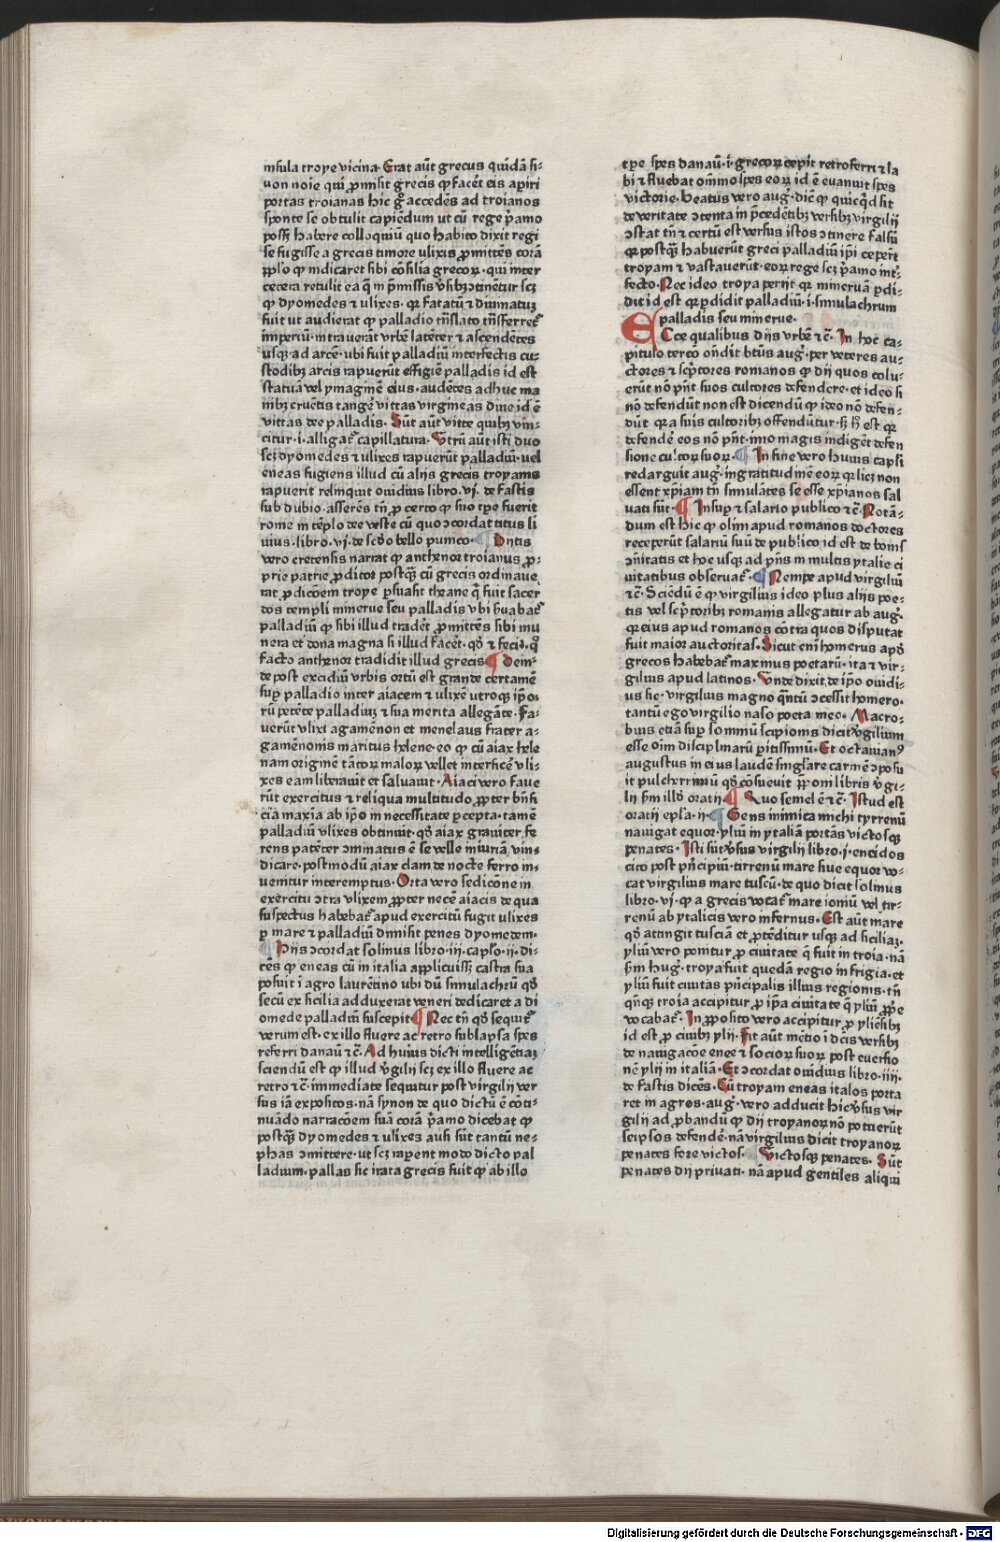 insula troye vicina. Erat aūt grecus quidā si-
uon noīe qui ꝓmisit grecis ꝙ facēt eis apiri
portas troianas hic gͦ accedēs ad troianos
sponte se obtulit capiēdum ut cū rege p̄amo
possꝫ habere colloquiū quo habito dixit regi
se fugisse a grecis timore ulixis ꝓmittēs corā
ꝓplo ꝙ indicaret sibi cōsilia grecoꝝ. qui inter
cetera retulit ea q̄ in p̄missis v̄sibꝫ ↄtinetur scꝫ
ꝙ dyomedes ⁊ ulixes. qꝛ fatatū ⁊ diuinatuꝫ
fuit ut audierat ꝙ palladio trāslato trāsferret᷑
īmperiū. intrauerāt vrbē latēter ⁊ ascendētes
usqꝫ ad arcē. ubi fuit palladiū interfectis cu-
stodibꝫ arcis rapuerūt effigiē palladis id est
statuā vel ymaginē eius. audētes adhuc ma
nibꝫ cruētis tangē vittas virgineas diue id ē
vittas dee palladis. Sūt aūt vitte quibꝫ vin-
citur .i. alligat᷑ capillatura. Vtrū aūt isti duo
scꝫ dyomedes ⁊ ulixes rapuerūt palladiū. uel
eneas fugiens illud cū alijs grecis troyanis
rapuerit relinquit ouidius libro. vj. de fastis
sub dubio. asserens tn̄ ꝓ certo ꝙ suo tꝑe fuerit
rome in tēplo dee veste cū quo ↄcordat titus li
uius. libro. vj. de scd̄o bello punico. Ditis
vero cretensis narrat ꝙ anthenor troianus ꝓ-
prie patrie ꝓditor postqꝫ cū grecis ordinaue
rat ꝓdicōem troye ꝑsuasit theane q̄ fuit sacer
dos templi minerue seu palladis vbi s̄uabat᷑
palladiū ꝙ sibi illud tradēt ꝓmittēs sibi mu
nera et dona magna si illud facēt. qd̄ ⁊ fecit. qͦ
facto anthenor tradidit illud grecis Dein-
de post excidiū vrbis ortū est grande certamē
suꝑ palladio inter aiacem ⁊ ulixē utroqꝫ ip̄o-
rū petēte palladiuꝫ ⁊ sua merita allegāte. Fa-
uerūt vlixi agamēnon et menelaus frater a-
gamēnonis maritus helene. eo ꝙ cū aiax hele
nam originē tātoꝝ maloꝝ vellet interficē vli-
xes eam liberauit et saluauit. Aiaci vero faue
rūt exercitus ⁊ reliqua multitudo ꝓpter bn̄fi
cia maxia ab ip̄o in necessitate ꝑcepta. tamē
palladiū vlixes obtinuit. qd̄ aiax grauiter fe
rens patēter ↄminatus ē se velle iniuriā vin-
dicare. postmodū aiax clam de nocte ferro in-
uenitur interemptus. Orta vero sedicōne in
exercitu ↄtra vlixem ꝓpter necē aiacis de qua
suspectus habebat᷑ apud exercitū fugit ulixes
ꝑ mare ⁊ palladiū dimisit penes dyomedem.
Hijs ↄcordat solinus libro. iij. caplo. ij. di-
cēs ꝙ eneas cū in italia applicuissꝫ castra sua
posuit ī agro laurētino ubi dū simulachrū qd̄
secū ex sicilia adduxerat veneri dedicaret a di
omede palladiū suscepit Nec tn̄ qd̄ sequit᷑
verum est. ex illo fluere ac retro sublapsa spes
referri danaū ⁊c̄. Ad huius dicti intelligētiaꝫ
sciendū est ꝙ illud v̄gilij scꝫ ex illo fluere ac
retro ⁊c̄ immediate sequitur post virgilij ver
sus iā expositos. nā synon de quo dictū ē cōti-
nuādo narracōem suā corā p̄amo dicebat ꝙ
postqꝫ dyomedes ⁊ ulixes ausi sūt tantū ne-
phas ↄmittere. ut scꝫ raꝑent modo dicto pal
ladium. pallas sic irata grecis fuit ꝙ ab illo
tꝑe spes danaū .i. grecoꝝ cepit retroferri ⁊ la
bi ⁊ fluebat om̄mo spes eoꝝ id ē euanuit spes
victorie. Beatus vero auḡ. dicē ꝙ quicq̄d sit
de veritate ↄtenta in p̄cedētibꝫ versibꝫ virgilij
ↄstat tn̄ ⁊ certū est versus istos ↄtinere falsū
qꝛ postqꝫ habuerūt greci palladiū ip̄i ceperūt
troyam ⁊ vastauerūt. eoꝝ rege scꝫ p̄amo int̄-
fecto. Nec ideo troya perijt qꝛ mineruā ꝑdi-
dit id est qꝛ ꝑdidit palladiū .i. simulachrum
palladis seu minerue.
ECce qualibus dijs vrbē ⁊c̄. In hoc ca-
pitulo terco on̄dit btūs auḡ. per veteres au-
ctores ⁊ scp̄tores romanos ꝙ dij quos colu-
erūt nō pn̄t suos cultores defendere. et ideo si
nō defendūt non est dicendū ꝙ ideo nō defen-
dūt qꝛ a suis cultoribꝫ offendūtur. sꝫ hͦ est qꝛ
defendē eos nō pn̄t. imo magis indigēt defen
sione cultoꝝ suoꝝ. In fine vero huius capli
redarguit auḡ. ingratitudinē eoꝝ qꝛ licꝫ non
essent xp̄iani tn̄ simulātes se esse xp̄ianos sal
uati sūt. Insuꝑ ⁊ salario publico ⁊c̄. Notā-
dum est hic ꝙ olim apud romanos doctores
receperūt salariū suū de publico id est de bonis
ↄīnitatis et hoc usqꝫ ad pn̄s in multis ytalie ci
uitatibus obseruat᷑. Nempe apud virgiliū
⁊c̄. Sciēdū ē ꝙ virgilius ideo plus alijs poe-
tis vel scp̄toribꝫ romanis allegatur ab auḡ.
qꝛ eius apud romanos cōtra quos disputat
fuit maior auctoritas. Sicut eni homerus apd̄
grecos habebat᷑ maximus poetarū. ita ⁊ vir-
gilius apud latinos. Vnde dixit de ip̄o ouidi-
us sic. virgilius magno qn̄tū ↄcessit homero.
tantū ego virgilio naso poeta meo. Macro-
bius etiā suꝑ somniū scipionis dicit v̄gilium
esse oīm disciplinarū ꝑitissimū. Et octauianꝰ
augustus in eius laudē singlare carmē ↄposu
it pulcherrimū qd̄ cōsueuit p̄poni libris v̄gi-
lij sm̄ illd̄ oratij Quo semel ē ⁊c̄. Istud est
oratij epla. ij. Gens inimica michi tyrrenū
nauigat equor. yliū in ytaliā portās victosqꝫ
penates. Isti sūt v̄sus virgilij libro. j. eneidos
cito post p̄ncipiū. tirrenū mare siue equor vo-
cat virgilius mare tuscū. de quo dicit solinus
libro. vj. ꝙ a grecis vocat᷑ mare ioniū vel tir-
renū ab ytalicis vero infernus. Est aūt mare
qd̄ attingit tusciā et ꝓtēditur usqꝫ ad siciliaꝫ.
yliū vero ponitur ꝓ ciuitate q̄ fuit in troia. nā
sm̄ huḡ. troya fuit quedā regio in frigia. et
yliū fuit ciuitas p̄ncipalis illius regionis. tn̄
qn̄qꝫ troia accipitur ꝓ ip̄a ciuitate q̄ yliū ꝓpe
vocabat᷑. In ꝓposito vero accipitur ꝓ yliēsibꝫ
id est ꝓ ciuibꝫ ylij. Fit aūt mētio ī dcīs versibꝫ
de nauigacōe enee ⁊ socioꝝ suoꝝ post euersio
nē ylij in italiā. Et ↄcordat ouidius libro. iiij.
de fastis dicēs. Cū troyam eneas italos porta
ret in agros. auḡ. vero adducit hic v̄sus vir
gilij ad ꝓbandū ꝙ dij troyanoꝝ nō potuerūt
seipsos defendē. nā virgilius dicit troyanoꝝ
penates fore victos. Victosqꝫ penates. Sūt
penates dij priuati. nā apud gentiles aliqui
Digitalisierung gefördert durch die Deutsche Forschungsgemeinschaft - DFG